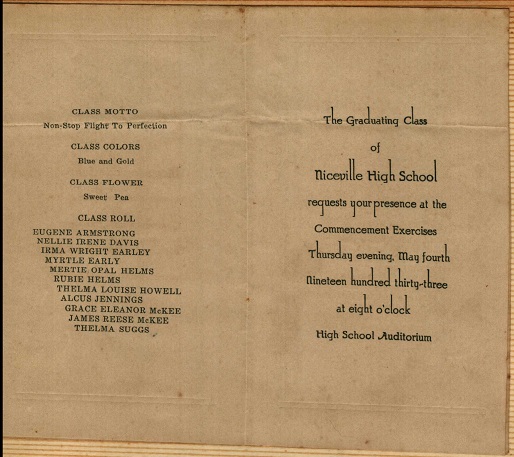 CLASS MOTTO
Non-Stop Flight To Perfection
CLASS COLORS
Blue and Gold
CLASS FLOWER
Sweet Pea
CLASS ROLL
EUGENE ARMSTRONG
NELLIE IRENE DAVIS
IRMA WRIGHT EARLEY
MYRTLE EARLY
MERTIE OPAL HELMS
RUBIE HELMS
THELMA LOUISE HOWELL
ALCUS JENNINGS
GRACE ELEANOR McKEE
JAMES REESE McKEE
THELMA SUGGS
The Graduating Class
of
Niceville High School
requests your presence at the
Commencement Exercises
Thursday evening, May fourth
Nineteen hundred thirty-three
at eight o'clock
High School Auditorium